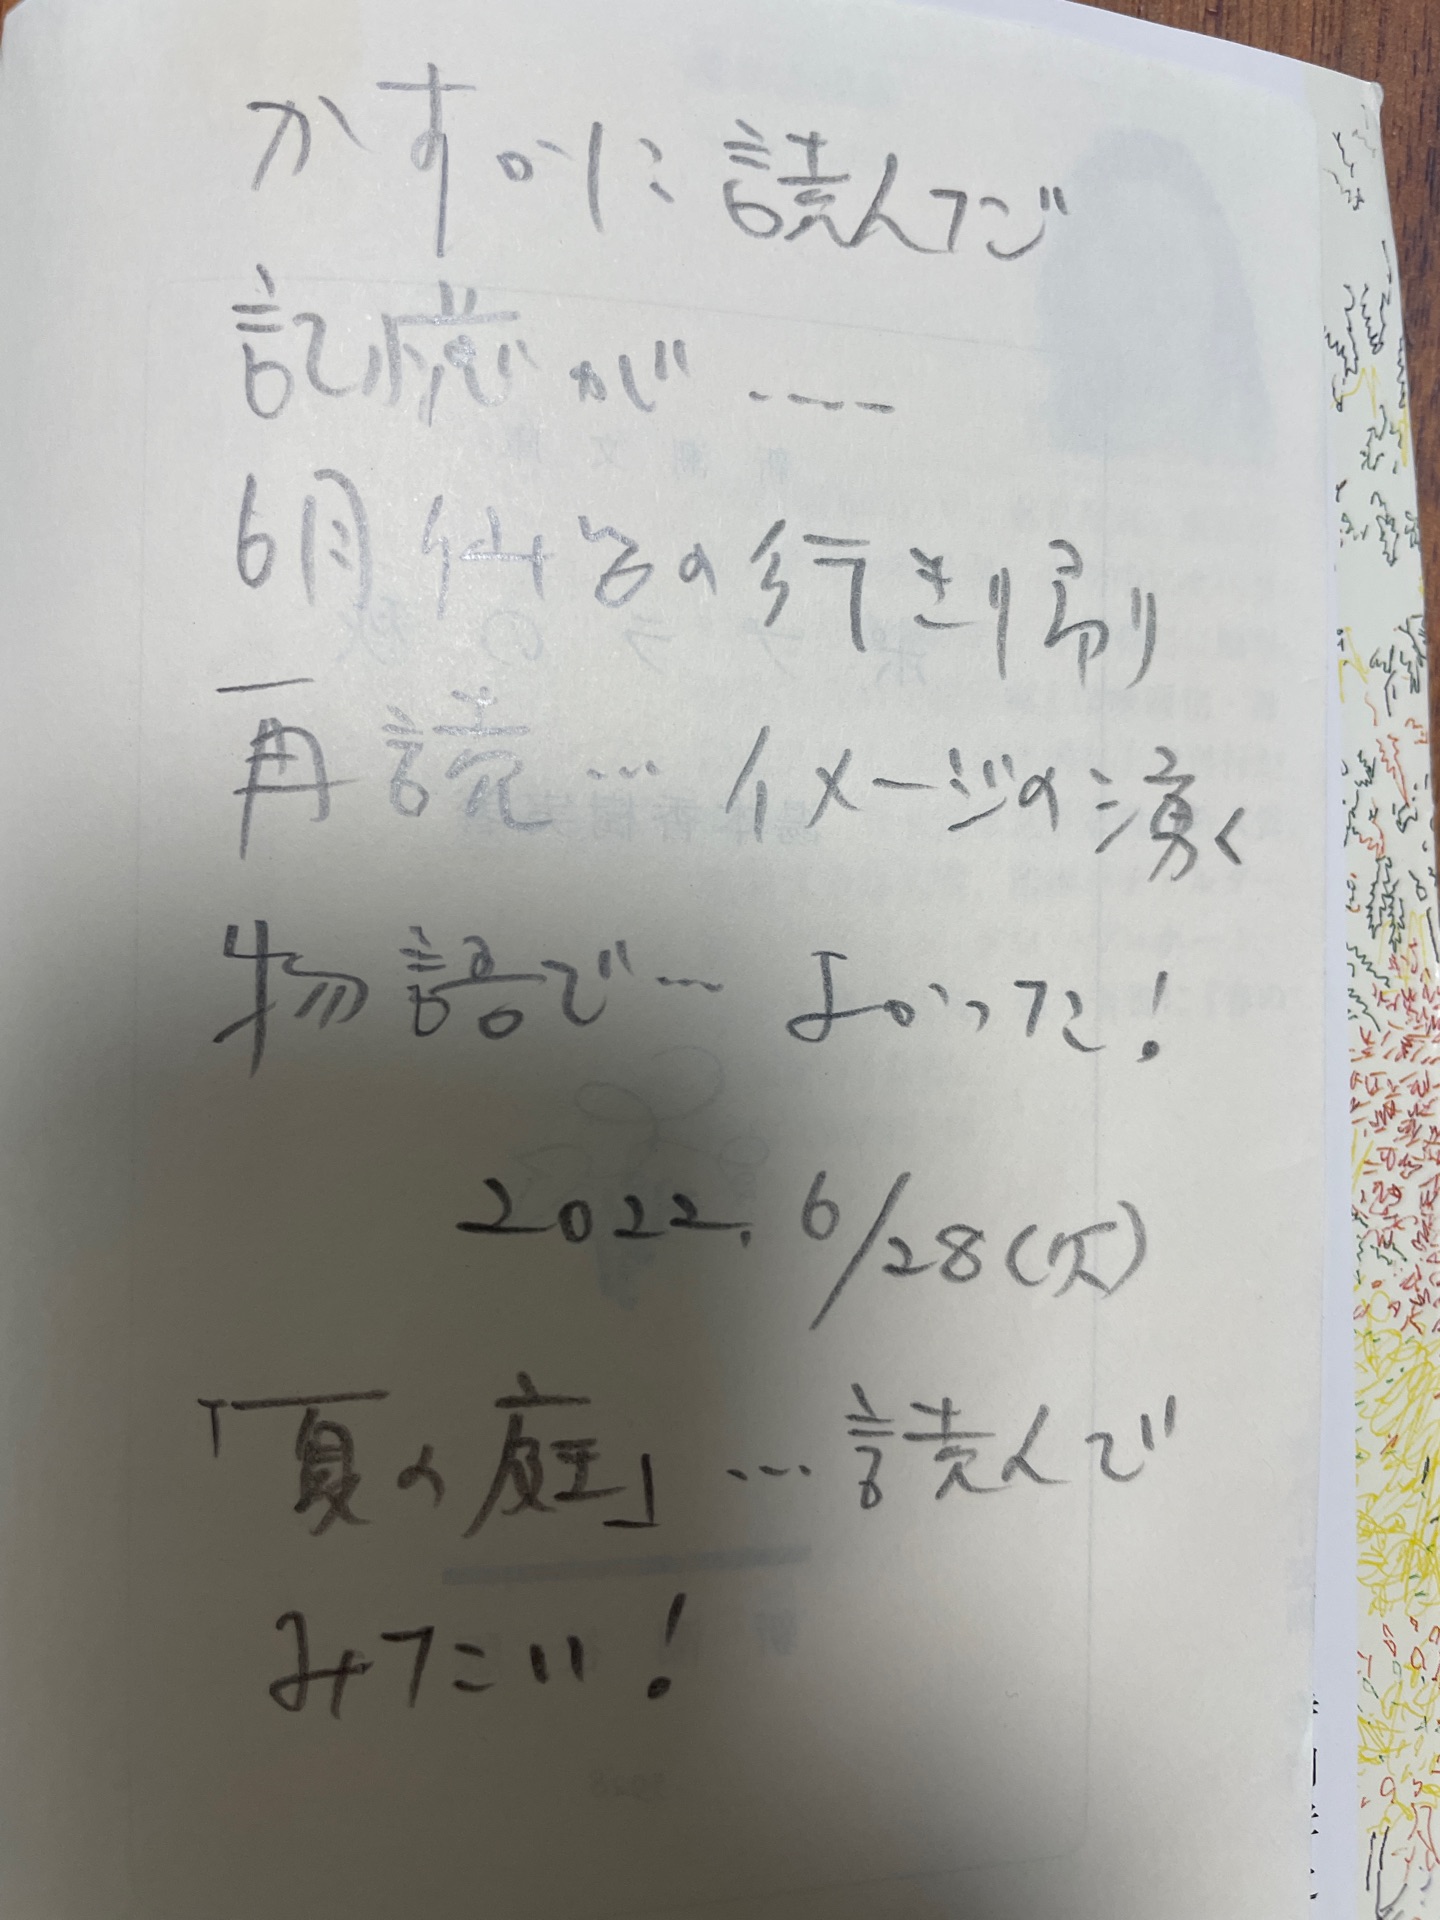 かすかに読んだ
記憶が‥‥
6月仙台の行き帰り
再読… イメージの湧く
物語で… よかった!
2022. 6/28(火)
「夏の庭」…読んで
みたい!